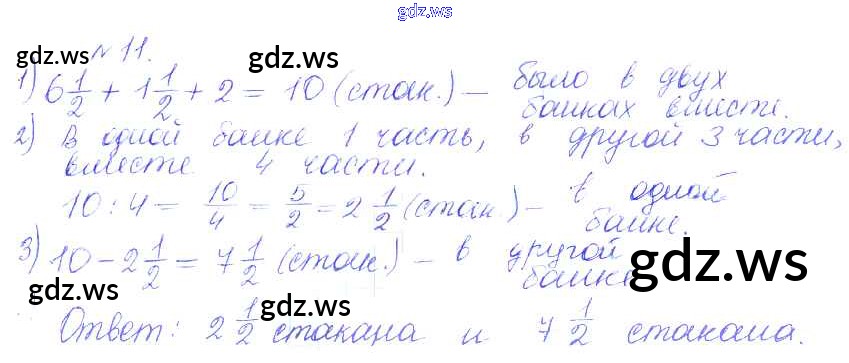 gdz.ws
№ 11.
gdz.ws gdz.ws
1) 6 1/2 + 1 1/2 + 2 = 10 (стак.) — было в двух
банках вместе.
2) В одной банке 1 часть, в другой 3 части,
вместе 4 части.
10 : 4 = 10/4 = 5/2 = 2 1/2 (стак.) — в одной
банке.
3) 10 - 2 1/2 = 7 1/2 (стак.) — в другой
банке
gdz.ws
gdz.ws gdz.ws
Ответ: 2 1/2 стакана и 7 1/2 стакана.